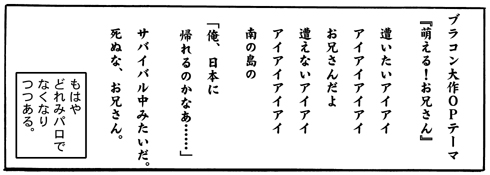 ブラコン大作OPテーマ
『萌える!お兄さん』
遭いたいアイアイ
アイアイアイアイ
お兄さんだよ
遭えないアイアイ
アイアイアイアイ
南の島の
「俺、日本に
帰れるのかなあ……」
サバイバル中みたいだ。
死ぬな、お兄さん。
もはや
どれみパロで
なくなり
つつある。